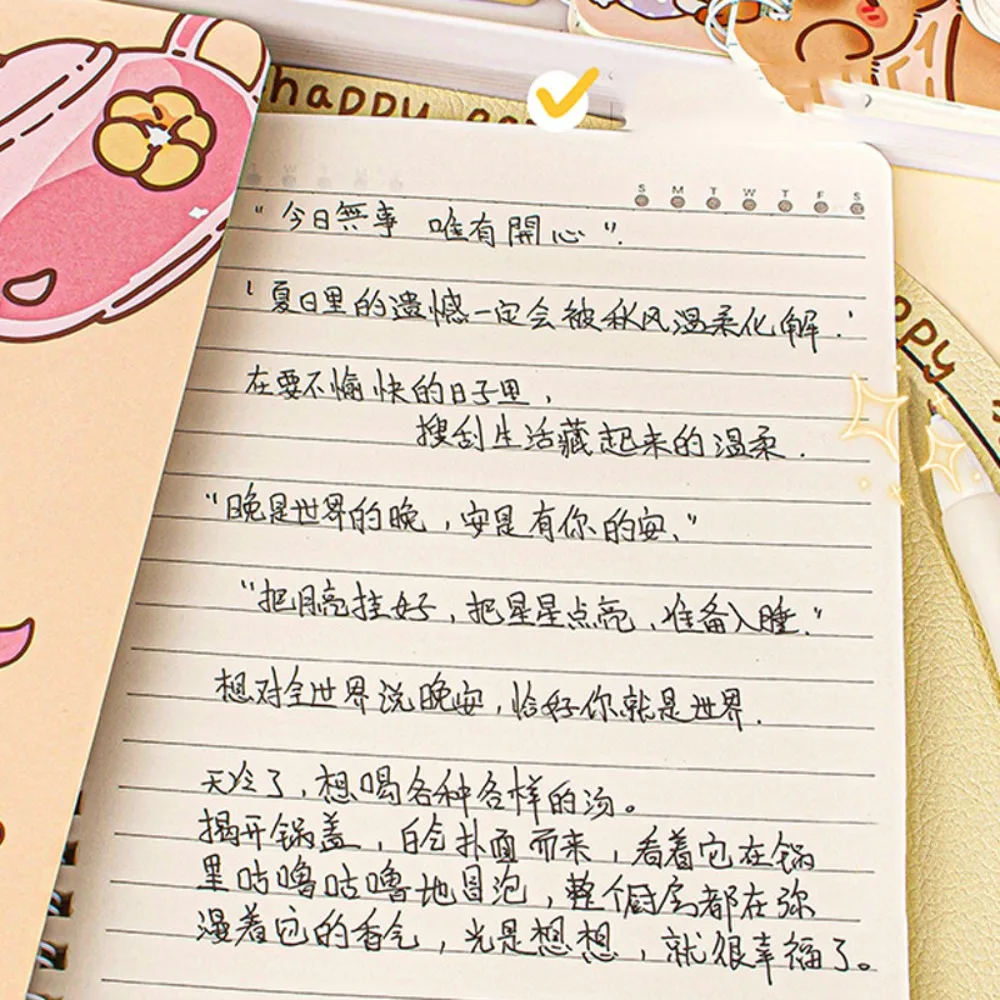 happy
S M T W T F S
"今日無事 唯有開心".
'夏日里的遗憾一定会被秋风温柔化解.'
在要不愉快的日子里,
搜刮生活藏起来的温柔.
"晚是世界的晚,安是有你的安."
"把月亮挂好,把星星点亮,准备入睡."
想对全世界说晚安,恰好你就是世界.
天冷了,想喝各种各样的汤。
揭开锅盖,白气扑面而来,看着它在锅
里咕噜咕噜地冒泡,整个厨房都在弥
漫着它的香气,光是想想,就很幸福了。
ppy